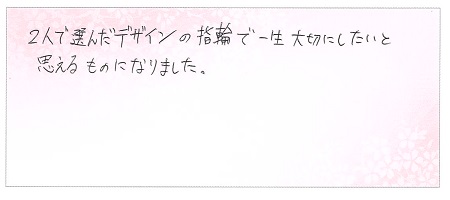 2人で選んだデザインの指輪で一生大切にしたいと
思えるものになりました。